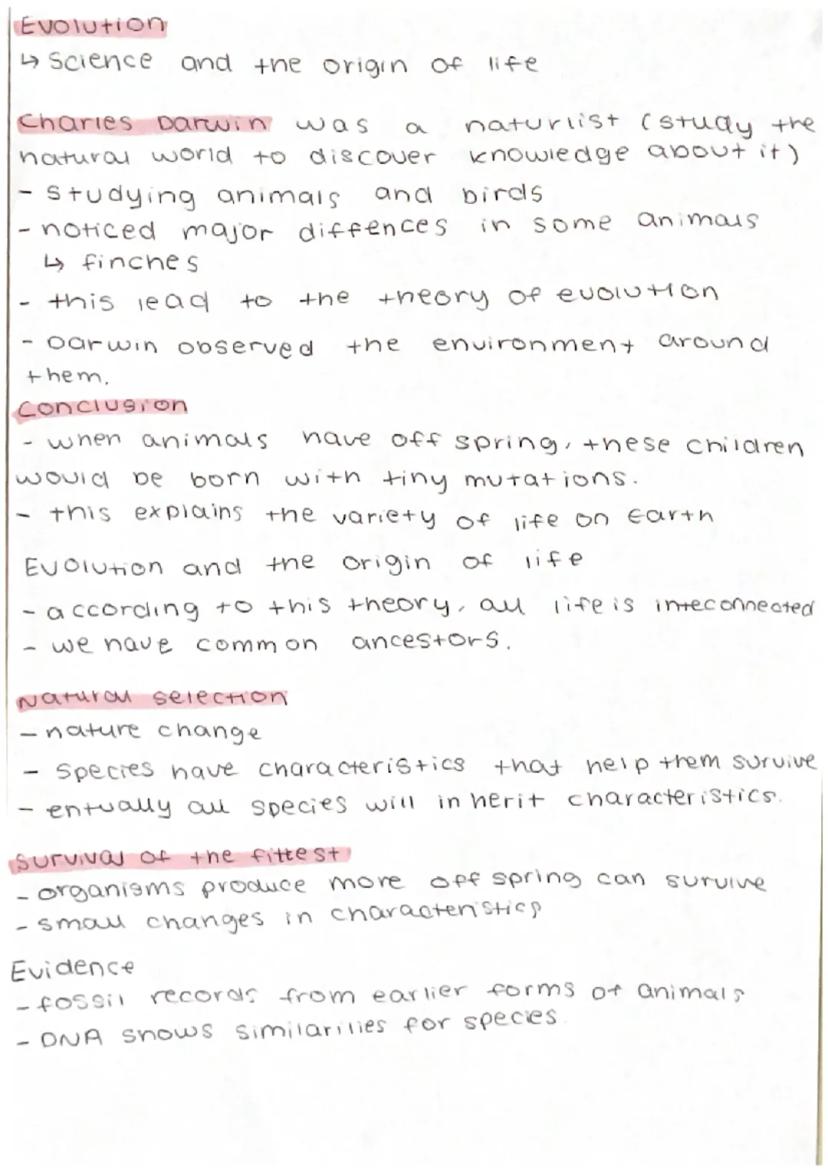 Evolution
↳ Science and the origin of life
Charles Darwin was a naturlist (study the
natural world to discover knowledge about it)
- studying animals and birds
- noticed major diffences in some animals
↳ finches
- this lead to the theory of evolution
- Darwin observed the environment around
them.
Conclusion
- when animals have off spring, these children
would be born with tiny mutations.
- this explains the variety of life on Earth
Evolution and the origin of life
- according to this theory, all life is inteconnected
- we have common ancestors.
Natural selection
- nature change
- Species have characteristics that help them survive
- entually all species will inherit characteristics.
Survival of the fittest
- organisms produce more off spring can survive
- small changes in characteristics
Evidence
- fossil records from earlier forms of animals
- DNA shows similarilies for species.